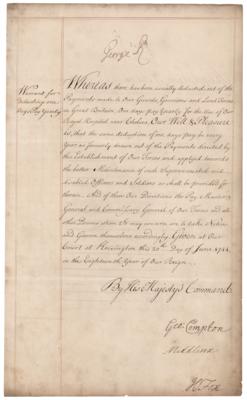 George R
Warrant for
Deducting one
Days Pay Yearly
Whereas there have been usually deducted out of the
Payments made to Our Guards, Garrisons and Land Forces
in Great Britain One days pay Yearly for the Use of Our
Royal Hospital near Chelsea, Our Will & Pleasure
is, that the same deduction of one days pay be every
Year as formerly drawn out of the Payments directed by
the Establishment of Our Forces and applied towards
the better Maintenance of such Superannuated and
disabled Officers and Soldiers as shall be provided for
therein. And of these Our Directions the Pay Master
General and Commissary General of Our Forces and all
other Persons whom it may concern are to take Notice
and Govern themselves accordingly. Given at Our
Court at Kensington this 20th day of June 1744
in the Eighteenth Year of Our Reign
By His Majestys Command
Geo: Compton
H Fox